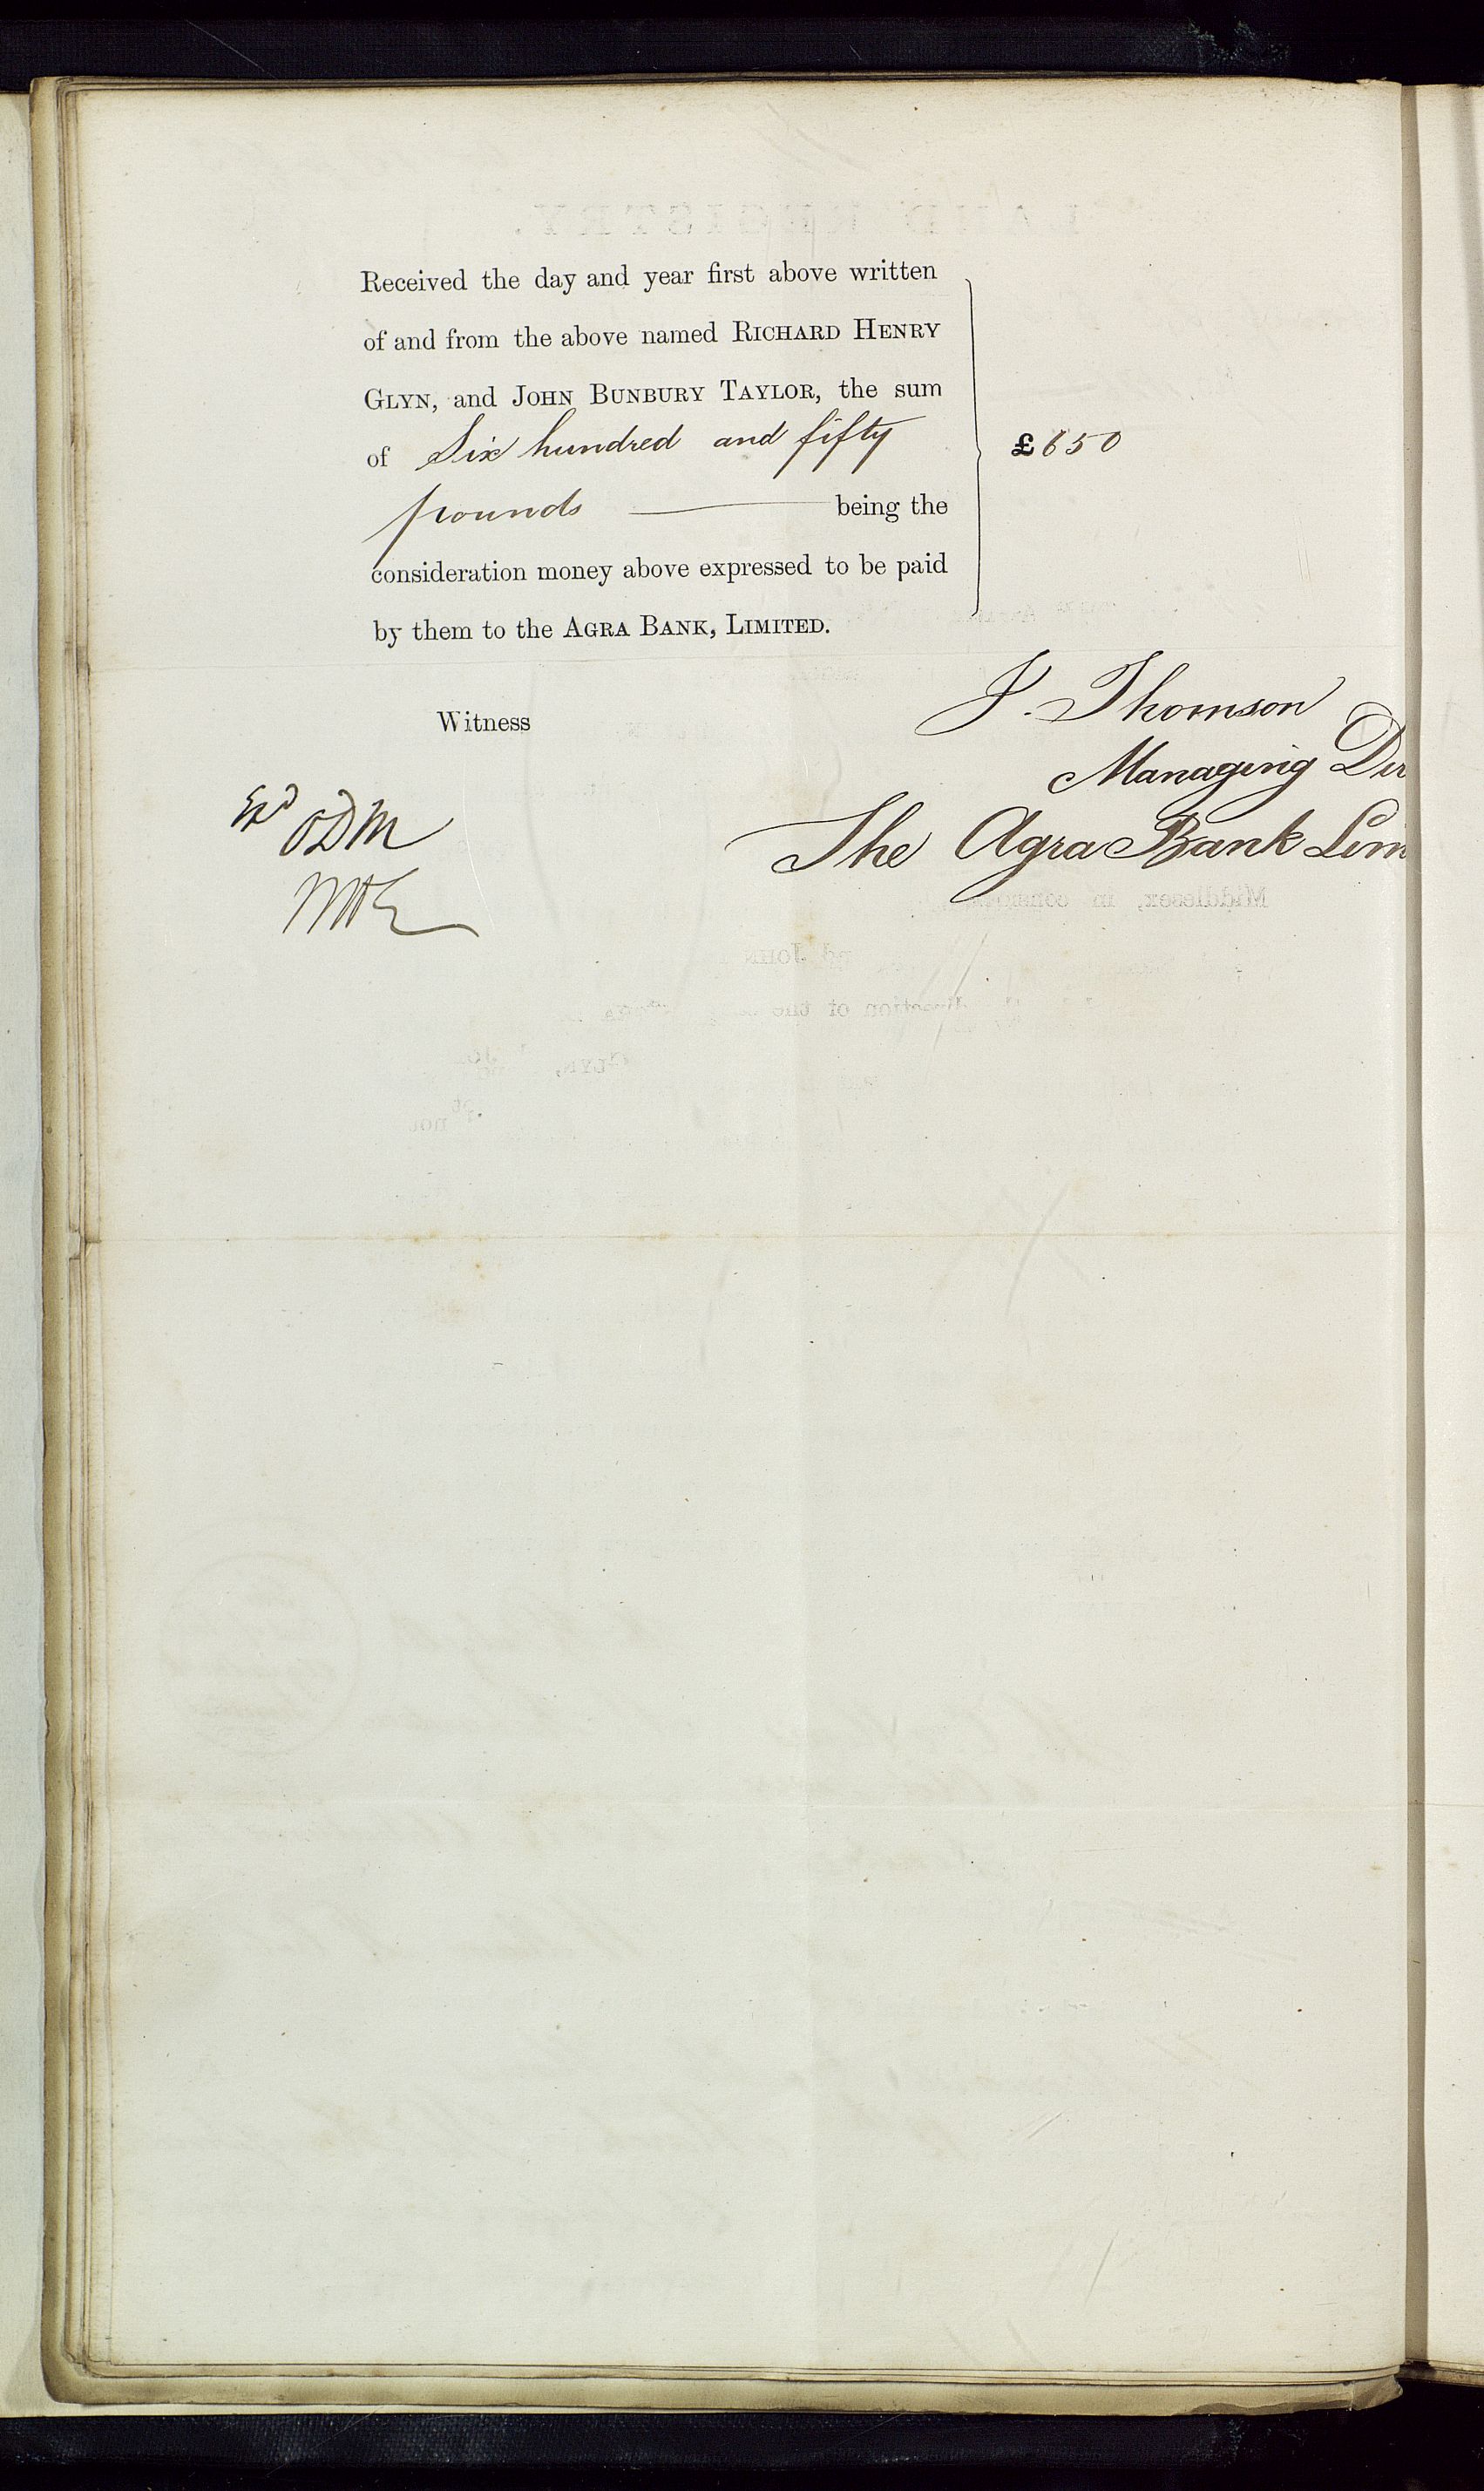 Received the day and year first above written
of and from the above named RICHARD HENRY
GLYN, and JOHN BUNBURY TAYLOR, the sum
of Six hundred and fifty
£650
pounds being the
consideration money above expressed to be paid
by them to the AGRA BANK, LIMITED.
J. Thomson
Witness
Managing Dir
The Agra Bank Lim
Exd